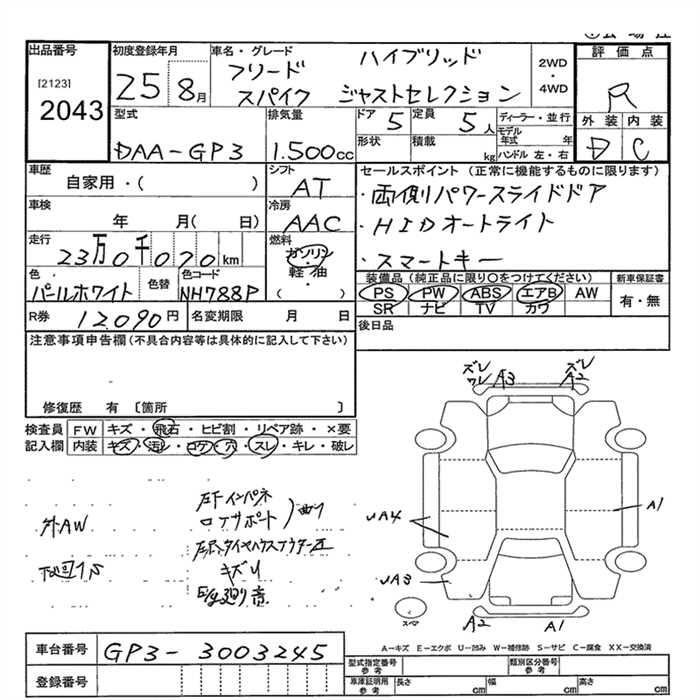 出品番号
[2123]
2043
初度登録年月
25 8月
車名・グレード
フリード ハイブリッド
スパイク ジャストセレクション
2WD
・
4WD
評価点
R
外装 内装
D C
型式
DAA-GP3
排気量
1.500cc
ドア 5
定員 5人
ディーラー・並行
モデル年式 年
形状
積載 kg
ハンドル 左・右
車歴
自家用・( )
シフト
AT
車検
年 月( 日)
冷房
AAC
走行
23万0千070km
燃料
ガソリン
軽油
( )
色
パールホワイト
色替
色コード
NH788P
R券 12,090円
名変期限 月 日
セールスポイント(正常に機能するものに限ります)
・両側パワースライドドア
・HIDオートライト
・スマートキー
装備品(純正品に限り○をつけてください)
PS PW ABS エアB AW
SR ナビ TV カワ
新車保証書
有・無
後日品
注意事項申告欄(不具合内容等は具体的に記入して下さい)
修復歴 有 〔箇所 〕
検査員 FW キズ・飛石・ヒビ割・リペア跡・×要
記入欄 内装 キズ・汚れ・コゲ・穴・スレ・キレ・破レ
外AW
左Fインパネ
ロアサポート 曲り
キズ有
ズレ
ワレ A3
ズレ
A2
A1
UA4
UA3
スペア
A2 A1
A-キズ E-エクボ U-凹み W-補修跡 S-サビ C-腐食 XX-交換済
車台番号
GP3-3003245
登録番号
型式指定番号
参考
類別区分番号
参考
車庫証明用
参考
長さ cm
幅 cm
高さ cm